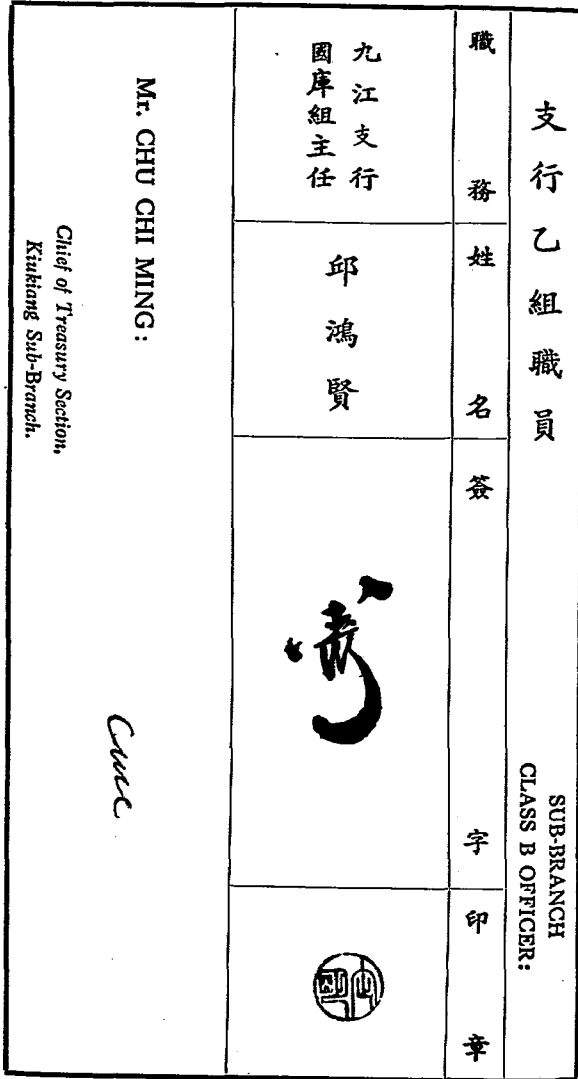 支行乙組職員
SUB-BRANCH
CLASS B OFFICER:
職務
姓名
簽字
印章
九江支行
國庫組主任
邱鴻賢
Mr. CHU CHI MING:
Chief of Treasury Section,
Kiukiang Sub-Branch.